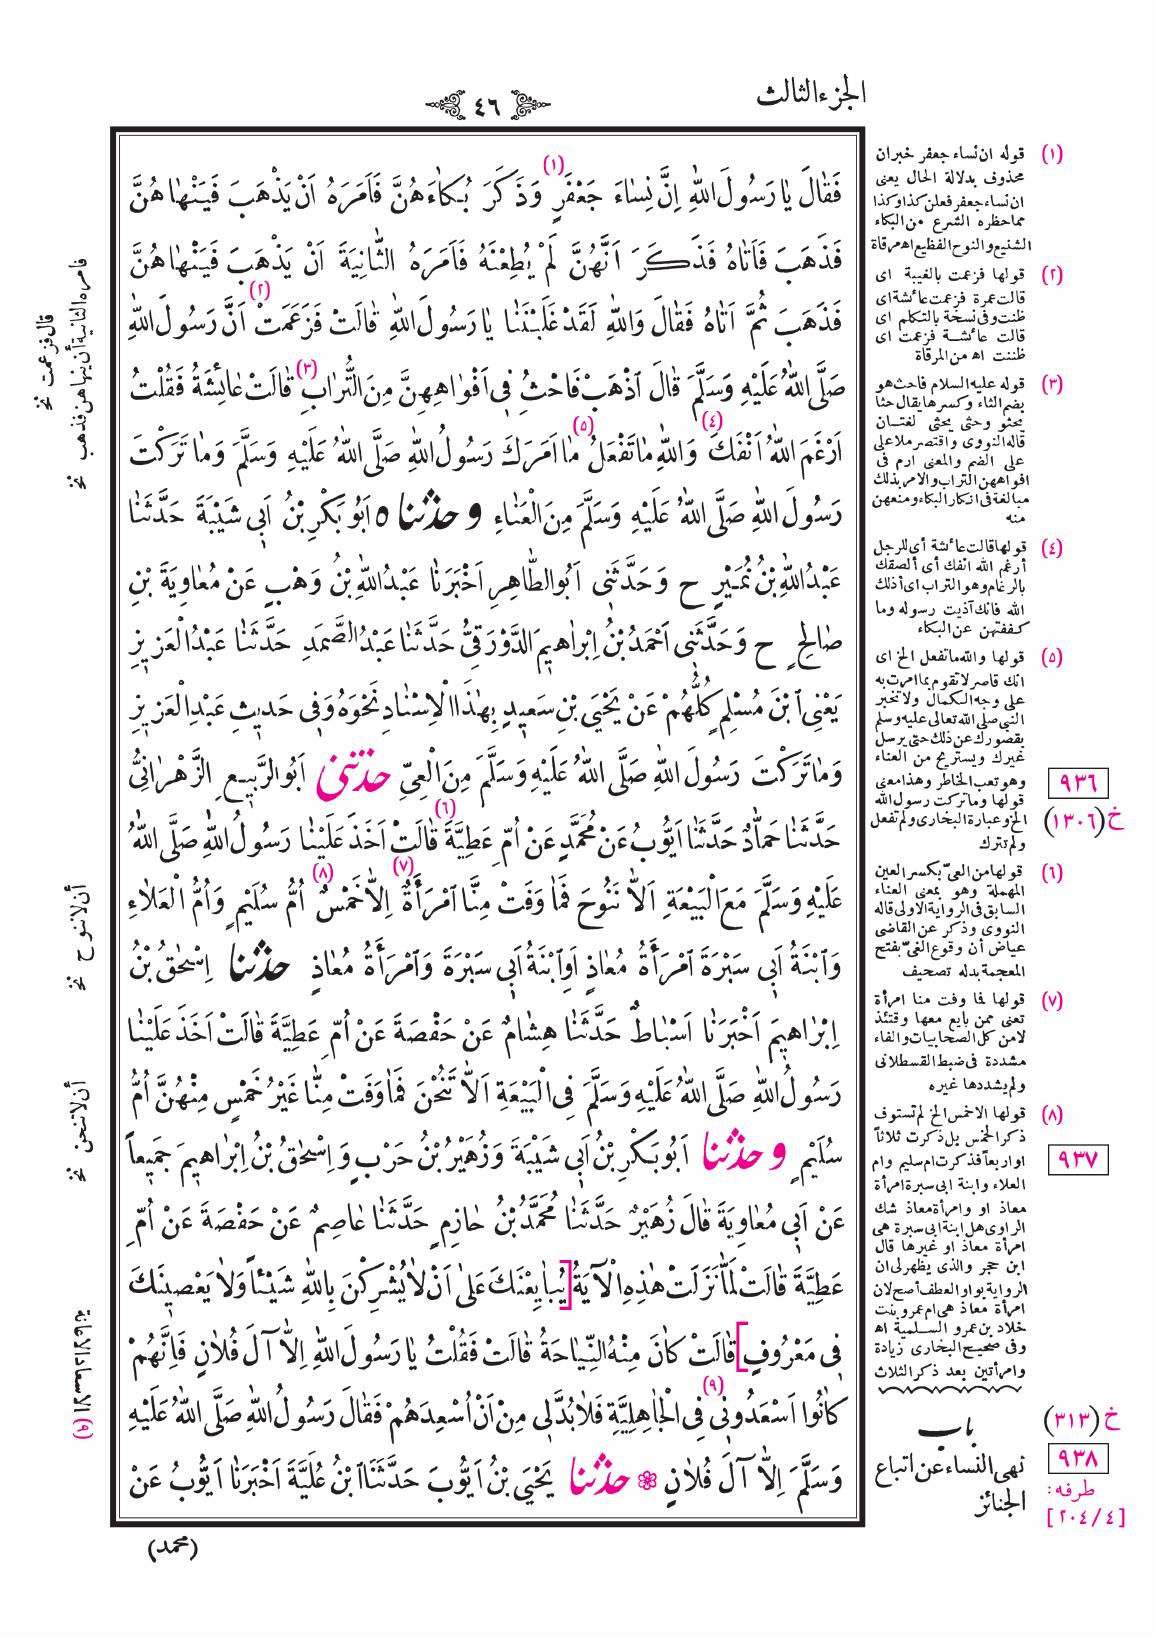 الجزء الثالث
٤٦
فَقَالَ يَا رَسُولَ اللهِ إِنَّ نِسَاءَ جَعْفَرٍ (١) وَذَكَرَ بُكَاءَهُنَّ فَأَمَرَهُ أَنْ يَذْهَبَ فَيَنْهَاهُنَّ
فَذَهَبَ فَأَتَاهُ فَذَكَرَ أَنَّهُنَّ لَمْ يُطِعْنَهُ فَأَمَرَهُ الثَّانِيَةَ أَنْ يَذْهَبَ فَيَنْهَاهُنَّ
فَذَهَبَ ثُمَّ أَتَاهُ فَقَالَ وَاللهِ لَقَدْ غَلَبْنَنَا يَا رَسُولَ اللهِ قَالَتْ فَزَعَمَتْ (٢) أَنَّ رَسُولَ اللهِ
صَلَّى اللهُ عَلَيْهِ وَسَلَّمَ قَالَ اذْهَبْ فَاحْثُ فِي أَفْوَاهِهِنَّ مِنَ التُّرَابِ (٣) قَالَتْ عَائِشَةُ فَقُلْتُ
أَرْغَمَ اللهُ أَنْفَكَ (٤) وَاللهِ مَا تَفْعَلُ (٥) مَا أَمَرَكَ رَسُولُ اللهِ صَلَّى اللهُ عَلَيْهِ وَسَلَّمَ وَمَا تَرَكْتَ
رَسُولَ اللهِ صَلَّى اللهُ عَلَيْهِ وَسَلَّمَ مِنَ الْعَنَاءِ وحدثنا ٥ أَبُو بَكْرِ بْنُ أَبِي شَيْبَةَ حَدَّثَنَا
عَبْدُ اللهِ بْنُ نُمَيْرٍ ح وَحَدَّثَنِي أَبُو الطَّاهِرِ أَخْبَرَنَا عَبْدُ اللهِ بْنُ وَهْبٍ عَنْ مُعَاوِيَةَ بْنِ
صَالِحٍ ح وَحَدَّثَنِي أَحْمَدُ بْنُ إِبْرَاهِيمَ الدَّوْرَقِيُّ حَدَّثَنَا عَبْدُ الصَّمَدِ حَدَّثَنَا عَبْدُ الْعَزِيزِ
يَعْنِي ابْنَ مُسْلِمٍ كُلُّهُمْ عَنْ يَحْيَى بْنِ سَعِيدٍ بِهٰذَا الْإِسْنَادِ نَحْوَهُ وَفِي حَدِيثِ عَبْدِ الْعَزِيزِ
وَمَا تَرَكْتَ رَسُولَ اللهِ صَلَّى اللهُ عَلَيْهِ وَسَلَّمَ مِنَ الْعِيِّ (٦) حدثني أَبُو الرَّبِيعِ الزَّهْرَانِيُّ
حَدَّثَنَا حَمَّادٌ حَدَّثَنَا أَيُّوبُ عَنْ مُحَمَّدٍ عَنْ أُمِّ عَطِيَّةَ قَالَتْ أَخَذَ عَلَيْنَا رَسُولُ اللهِ صَلَّى اللهُ
عَلَيْهِ وَسَلَّمَ مَعَ الْبَيْعَةِ أَلَّا نَنُوحَ فَمَا وَفَتْ مِنَّا امْرَأَةٌ (٧) إِلَّا خَمْسٌ (٨) أُمُّ سُلَيْمٍ وَأُمُّ الْعَلَاءِ
وَابْنَةُ أَبِي سَبْرَةَ امْرَأَةُ مُعَاذٍ أَوِ ابْنَةُ أَبِي سَبْرَةَ وَامْرَأَةُ مُعَاذٍ حدثنا إِسْحٰقُ بْنُ
إِبْرَاهِيمَ أَخْبَرَنَا أَسْبَاطٌ حَدَّثَنَا هِشَامٌ عَنْ حَفْصَةَ عَنْ أُمِّ عَطِيَّةَ قَالَتْ أَخَذَ عَلَيْنَا
رَسُولُ اللهِ صَلَّى اللهُ عَلَيْهِ وَسَلَّمَ فِي الْبَيْعَةِ أَلَّا تَنُحْنَ فَمَا وَفَتْ مِنَّا غَيْرُ خَمْسٍ مِنْهُنَّ أُمُّ
سُلَيْمٍ وحدثنا أَبُو بَكْرِ بْنُ أَبِي شَيْبَةَ وَزُهَيْرُ بْنُ حَرْبٍ وَإِسْحٰقُ بْنُ إِبْرَاهِيمَ جَمِيعاً
عَنْ أَبِي مُعَاوِيَةَ قَالَ زُهَيْرٌ حَدَّثَنَا مُحَمَّدُ بْنُ حَازِمٍ حَدَّثَنَا عَاصِمٌ عَنْ حَفْصَةَ عَنْ أُمِّ
عَطِيَّةَ قَالَتْ لَمَّا نَزَلَتْ هٰذِهِ الْآيَةُ [يُبَايِعْنَكَ عَلَى أَنْ لَا يُشْرِكْنَ بِاللهِ شَيْئاً وَلَا يَعْصِينَكَ
فِي مَعْرُوفٍ] قَالَتْ كَانَ مِنْهُ النِّيَاحَةُ قَالَتْ فَقُلْتُ يَا رَسُولَ اللهِ إِلَّا آلَ فُلَانٍ فَإِنَّهُمْ
كَانُوا أَسْعَدُونِي (٩) فِي الْجَاهِلِيَّةِ فَلَا بُدَّ لِي مِنْ أَنْ أُسْعِدَهُمْ فَقَالَ رَسُولُ اللهِ صَلَّى اللهُ عَلَيْهِ
وَسَلَّمَ إِلَّا آلَ فُلَانٍ ❀ حدثنا يَحْيَى بْنُ أَيُّوبَ حَدَّثَنَا ابْنُ عُلَيَّةَ أَخْبَرَنَا أَيُّوبُ عَنْ
(محمد)
(١) قوله ان نساء جعفر خبر ان
محذوف بدلالة الحال يعنى
ان نساء جعفر فعلن كذا وكذا
مما حظره الشرع من البكاء
الشنيع والنوح الفظيع اه مرقاة
(٢) قولها فزعمت بالغيبة اى
قالت عمرة فزعمت عائشة اى
ظنت وفى نسخة بالتكلم اى
قالت عائشة فزعمت اى
ظننت اه من المرقاة
(٣) قوله عليه السلام فاحث هو
بضم الثاء وكسرها يقال حثا
يحثو وحثى يحثى لغتان
قاله النووى واقتصر ملا على
على الضم والمعنى ارم فى
افواههن التراب والامر بذلك
مبالغة فى انكار البكاء ومنعهن
منه
(٤) قولها قالت عائشة أى للرجل
أرغم الله انفك أى ألصقك
بالرغام وهو التراب اى أذلك
الله فانك آذيت رسوله وما
كففتهن عن البكاء
(٥) قولها والله ما تفعل الخ اى
انك قاصر لا تقوم بما امرت به
على وجه الكمال ولا تخبر
النبى صلى الله تعالى عليه وسلم
بقصورك عن ذلك حتى يرسل
غيرك ويستريح من العناء
وهو تعب الخاطر وهذا معنى
قولها وما تركت رسول الله
الخ وعبارة البخارى ولم تفعل
ولم تترك
(٦) قولها من العىّ بكسر العين
المهملة وهو بمعنى العناء
السابق فى الرواية الاولى قاله
النووى وذكر عن القاضى
عياض أن وقوع الغىّ بفتح
المعجمة بدله تصحيف
(٧) قولها فما وفت منا امرأة
تعنى ممن بايع معها وقتئذ
لا من كل الصحابيات والفاء
مشددة فى ضبط القسطلانى
ولم يشددها غيره
(٨) قولها الا خمس الخ لم تستوف
ذكر الخمس بل ذكرت ثلاثاً
او اربعاً فذكرت ام سليم وام
العلاء وابنة ابى سبرة امرأة
معاذ او وامرأة معاذ شك
الراوى هل ابنة ابى سبرة هى
امرأة معاذ او غيرها قال
ابن حجر والذى يظهر لى ان
الرواية بواو العطف أصح لان
امرأة معاذ هى ام عمرو بنت
خلاد بن عمرو السلمية اه
وفى صحيح البخارى زيادة
وامرأتين بعد ذكر الثلاث
باب
نهى النساء عن اتباع
الجنائز
٩٣٦
خ (١٣٠٦)
٩٣٧
خ (٣١٣)
٩٣٨
طرفه:
[٢٠٤/٤]
قال فزعمت نخ
فامره الثانية أن ينهاهن فذهب نخ
أن لا ننوح نخ
أن لا تنحن نخ
(٩)